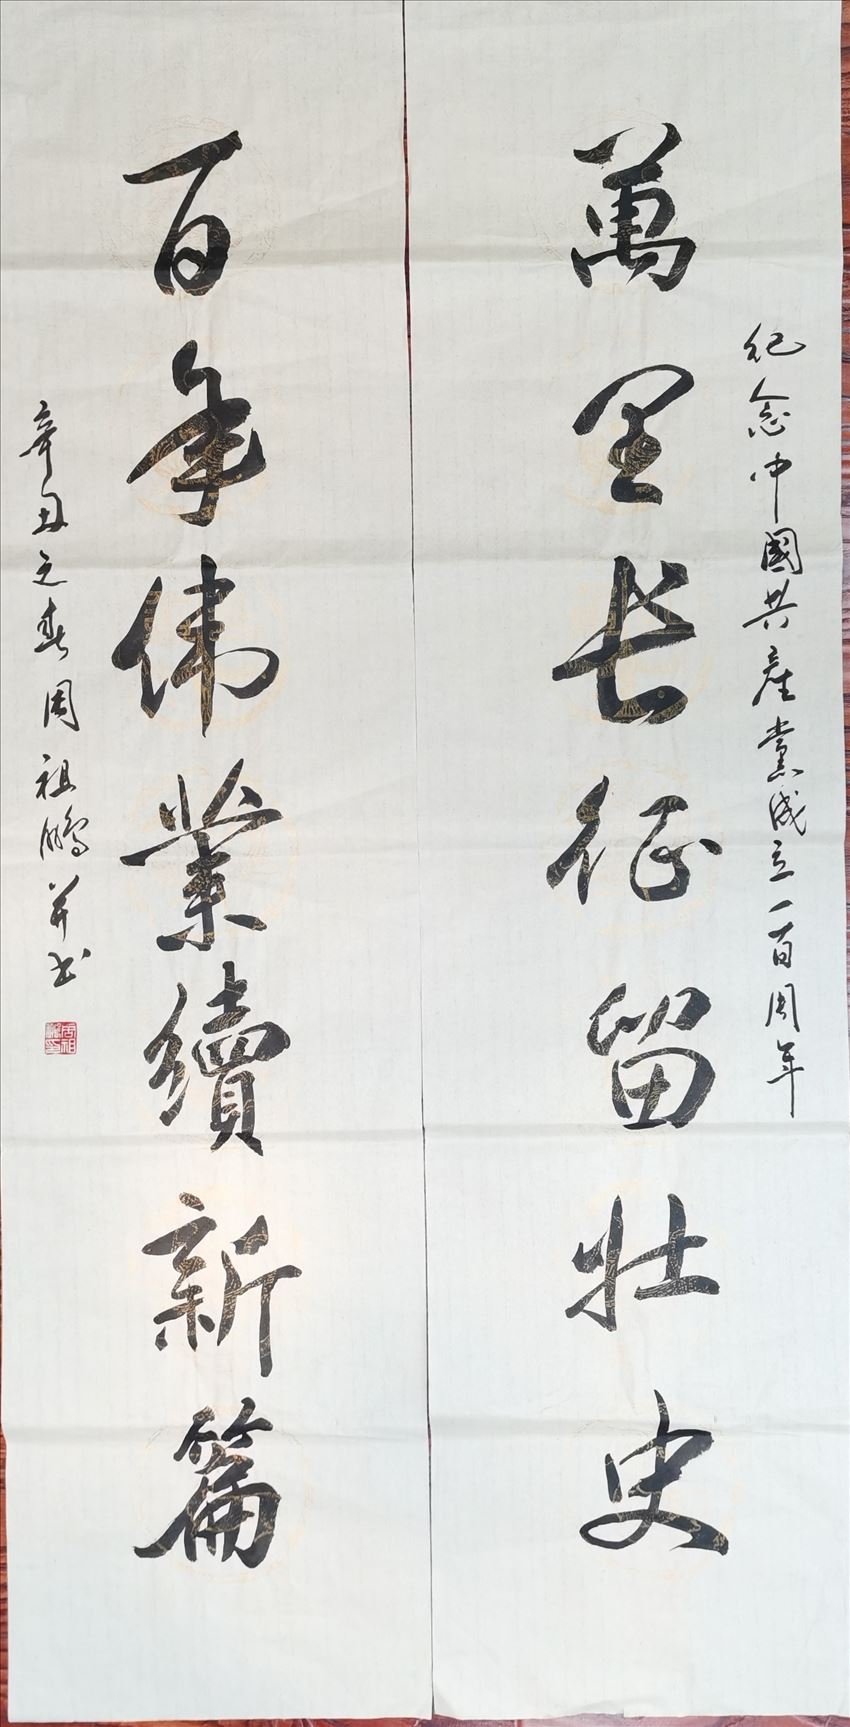 紀念中國共產黨成立一百周年
萬里長征留壯史
百年偉業續新篇
辛丑之春周祖鵬并书